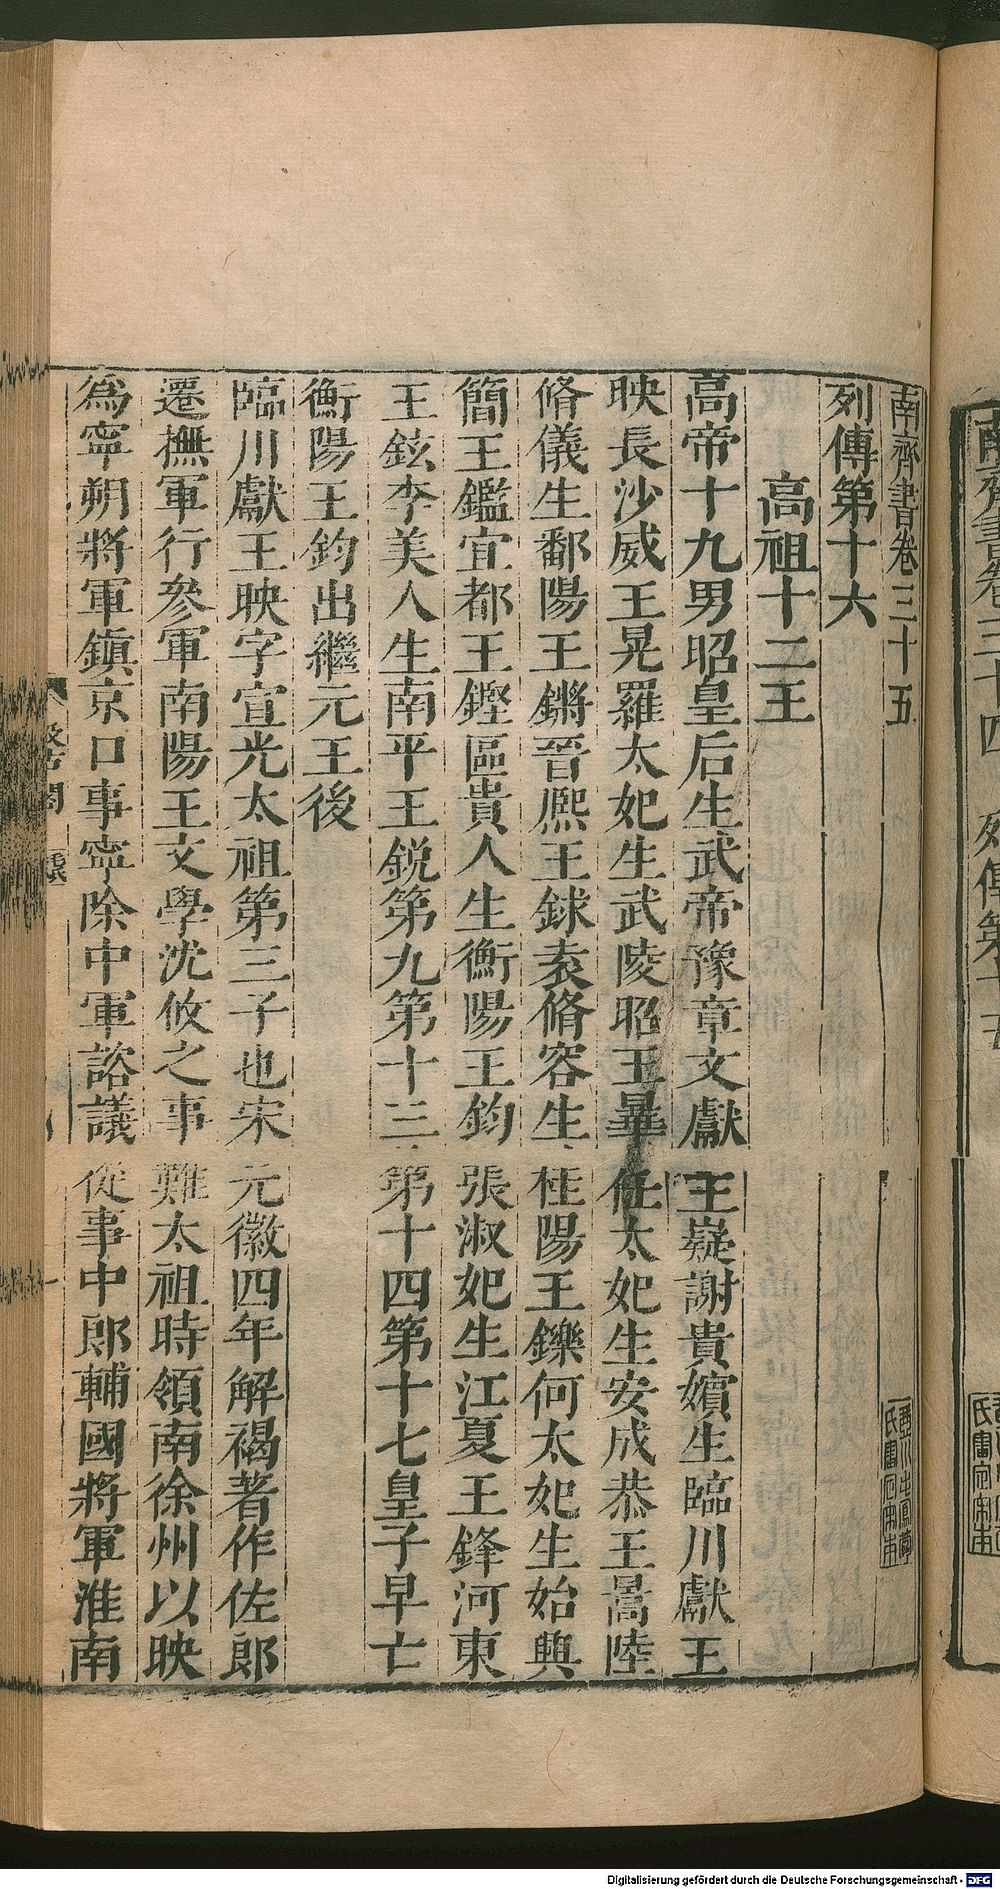 南齊書卷三十五
列傳第十六
高祖十二王
高帝十九男昭皇后生武帝豫章文獻王嶷謝貴嬪生臨川獻王
映長沙威王晃羅太妃生武陵昭王曅任太妃生安成恭王暠陸
脩儀生鄱陽王鏘晉熙王銶袁脩容生桂陽王鑠何太妃生始興
簡王鑑宜都王鏗區貴人生衡陽王鈞張淑妃生江夏王鋒河東
王鉉李美人生南平王鋭第九第十三第十四第十七皇子早亡
衡陽王鈞出繼元王後
臨川獻王映字宣光太祖第三子也宋元徽四年解褐著作佐郎
遷撫軍行參軍南陽王文學沈攸之事難太祖時領南徐州以映
為寧朔將軍鎮京口事寧除中軍諮議從事中郎輔國將軍淮南
南齊書卷三十四 列傳第十五
Digitalisierung gefördert durch die Deutsche Forschungsgemeinschaft - DFG